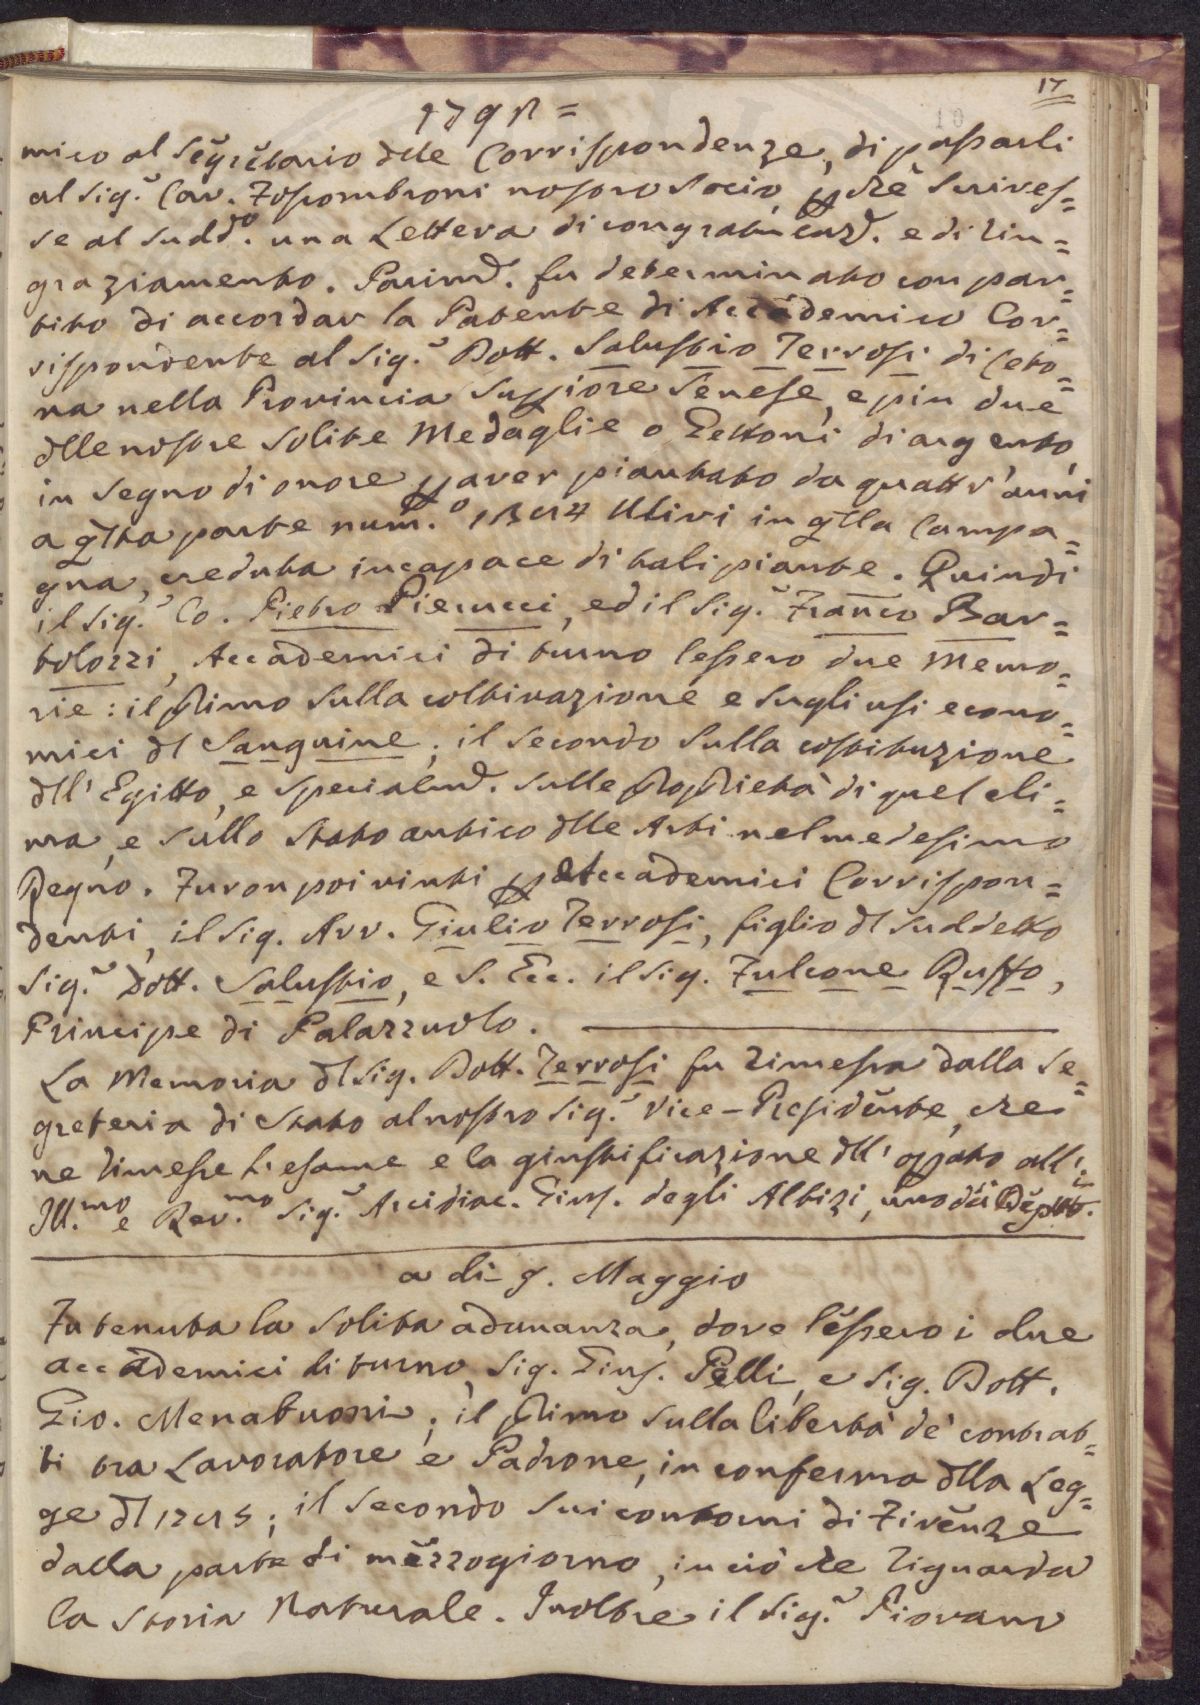 17
10
mico al Segretario dlle Corrispondenze, di passarli
al Sig.r Cav. Fossombroni nostro Socio, p chè scrives=
se al Sudd.o una Lettera di congratulaz. e di rin=
graziamento. Parim. fu determinato con par=
tito di accordar la Patente di Accademico Cor=
rispondente al Sig.r Dott. Salustio Terrosi di Ceto=
na nella Provincia Supiore Senese, e piu due
dlle nostre solite Medaglie o Gettoni di argento,
in segno di onore p aver piantato da quattr' anni
a qsta parte num.o Ulivi in qlla Campa=
gna, creduta incapace di tali piante. Quindi
il Sig.r Co. Pietro Pierucci, ed il Sig.r Franco Bar=
tolozzi, Accademici di turno lessero due Memo=
rie: il Primo Sulla coltivazione e sugli usi econo=
mici dl Sanguine; il secondo Sulla costituzione
dll' Egitto, e specialm. sulle proprietà di quel cli=
ma, e sullo stato antico dlle Arti nel medesimo
Regno. Furon poi vinti p Accademici Corrispon=
denti, il Sig. Avv. Giulio Terrosi, figlio dl suddetto
Sig.r Dott. Salustio, e S. Ecc. il Sig. Fulcone Ruffo,
Principe di Palazzuolo.
La Memoria dl Sig. Dott. Terrosi fu rimessa dalla Se=
greteria di Stato al nostro Sig.r Vice-Presidente, che
ne rimesse l'esame e la giustificazione dll' opato all'
Ill.mo e Rev.mo Sig.r Arcidiac. Gius. degli Albizi, uno dei Deput.
a di 9. Maggio
Fu tenuta la solita adunanza, dove lessero i due
accademici di turno, Sig. Gius. Pelli, e Sig. Dott.
Gio. Menabuoni; il primo sulla libertà de' contrat=
ti tra Lavoratore e Padrone, in conferma dlla Leg=
ge dl; il secondo sui contorni di Firenze
dalla parte di mezzogiorno, in ciò che riguarda
la Storia Naturale. Inoltre il Sig.r Piovano